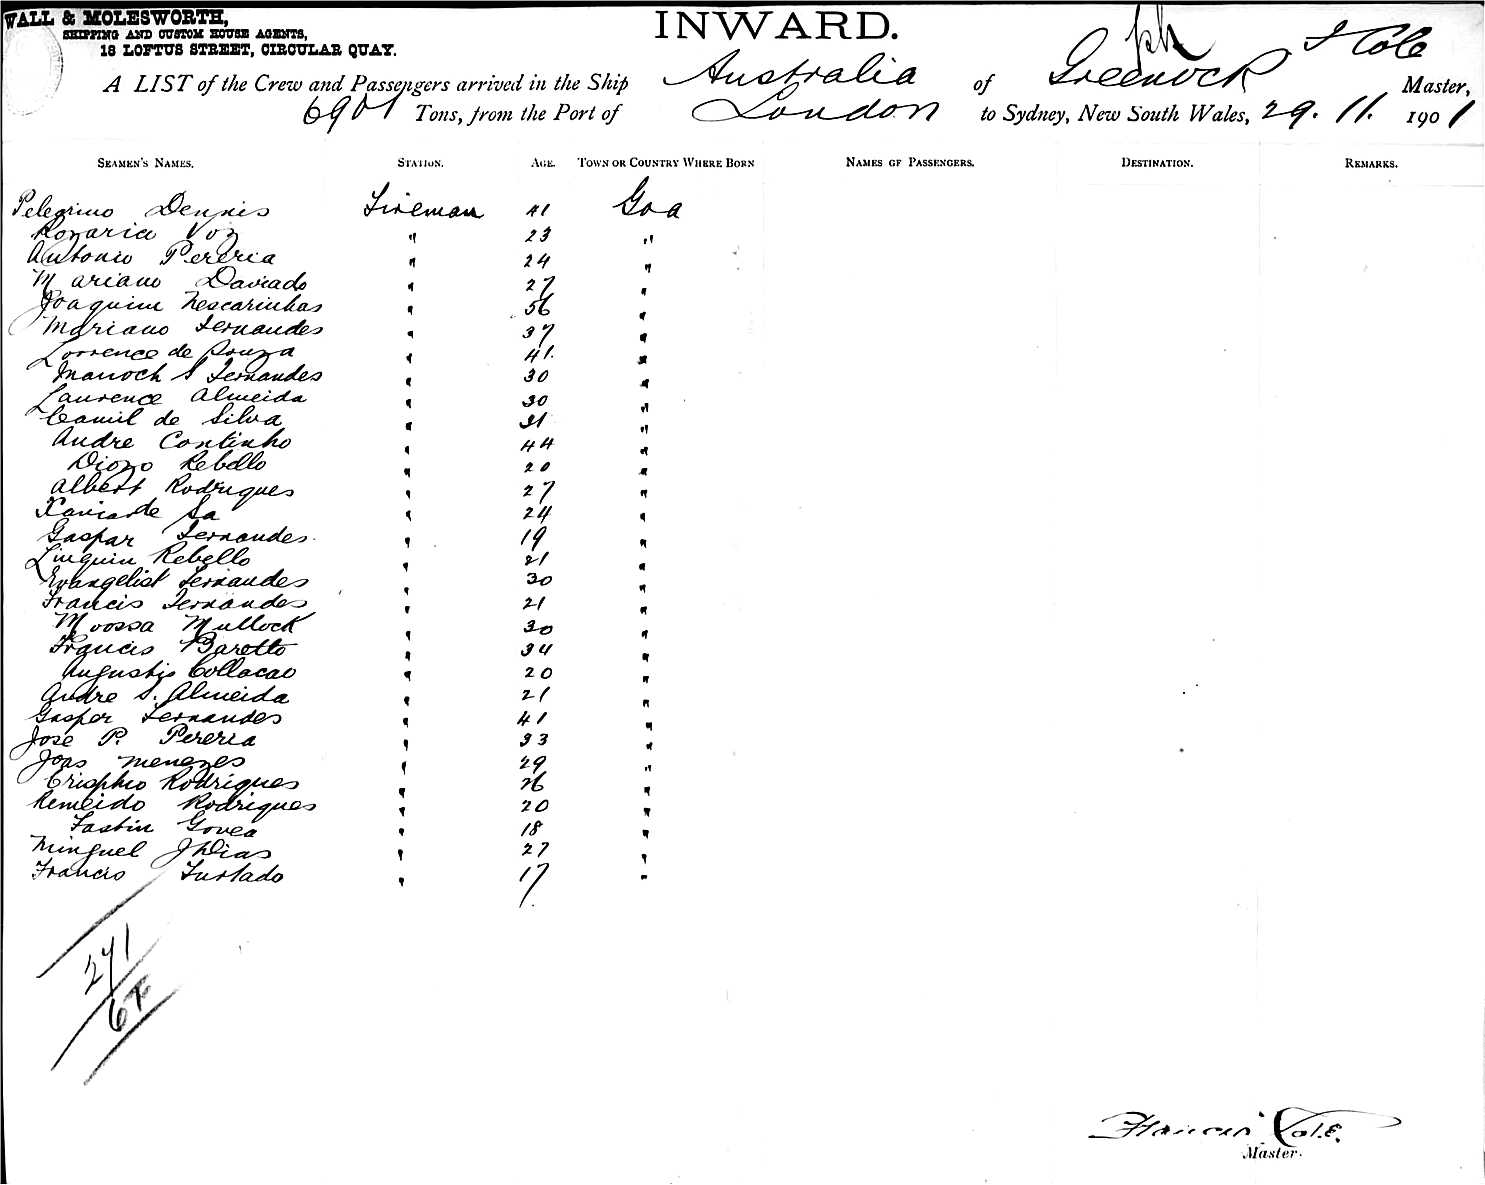 WALL & MOLESWORTH,
SHIPPING AND CUSTOM HOUSE AGENTS,
18 LOFTUS STREET, CIRCULAR QUAY.
INWARD.
A LIST of the Crew and Passengers arrived in the Ship Australia of Greenock F Cole Master,
6901 Tons, from the Port of London to Sydney, New South Wales, 29. 11. 1901
SEAMEN'S NAMES. STATION. AGE. TOWN OR COUNTRY WHERE BORN NAMES OF PASSENGERS. DESTINATION. REMARKS.
Pelegrino Dennis Fireman 41 Goa
Rozario Voz " 23 "
Antonio Pereria " 24 "
Mariano Daviado " 27 "
Joaquim Mescarinhas " 56 "
Mariano Fernandes " 37 "
Lorrence de Souza " 41 "
Manoch S Fernandes " 30 "
Laurence Almeida " 30 "
Camil de Silva " 31 "
Andre Continho " 44 "
Diogo Rebello " 20 "
Albert Rodrigues " 27 "
Xavier de Sa " 24 "
Gaspar Fernandes " 19 "
Linguin Rebello " 21 "
Evangelist Fernandes " 30 "
Francis Fernandes " 21 "
Moossa Mullock " 30 "
Francis Baretto " 34 "
Augustis Collacao " 20 "
Andre S. Almeida " 21 "
Gasper Fernandes " 41 "
Jose P. Pereria " 33 "
Joas Menezes " 29 "
Crisphio Rodrigues " 26 "
Remeido Rodrigues " 20 "
Fastin Govea " 18 "
Minguel J Dias " 27 "
Francis Furtado " 17 "
271
Francis Cole.
Master.